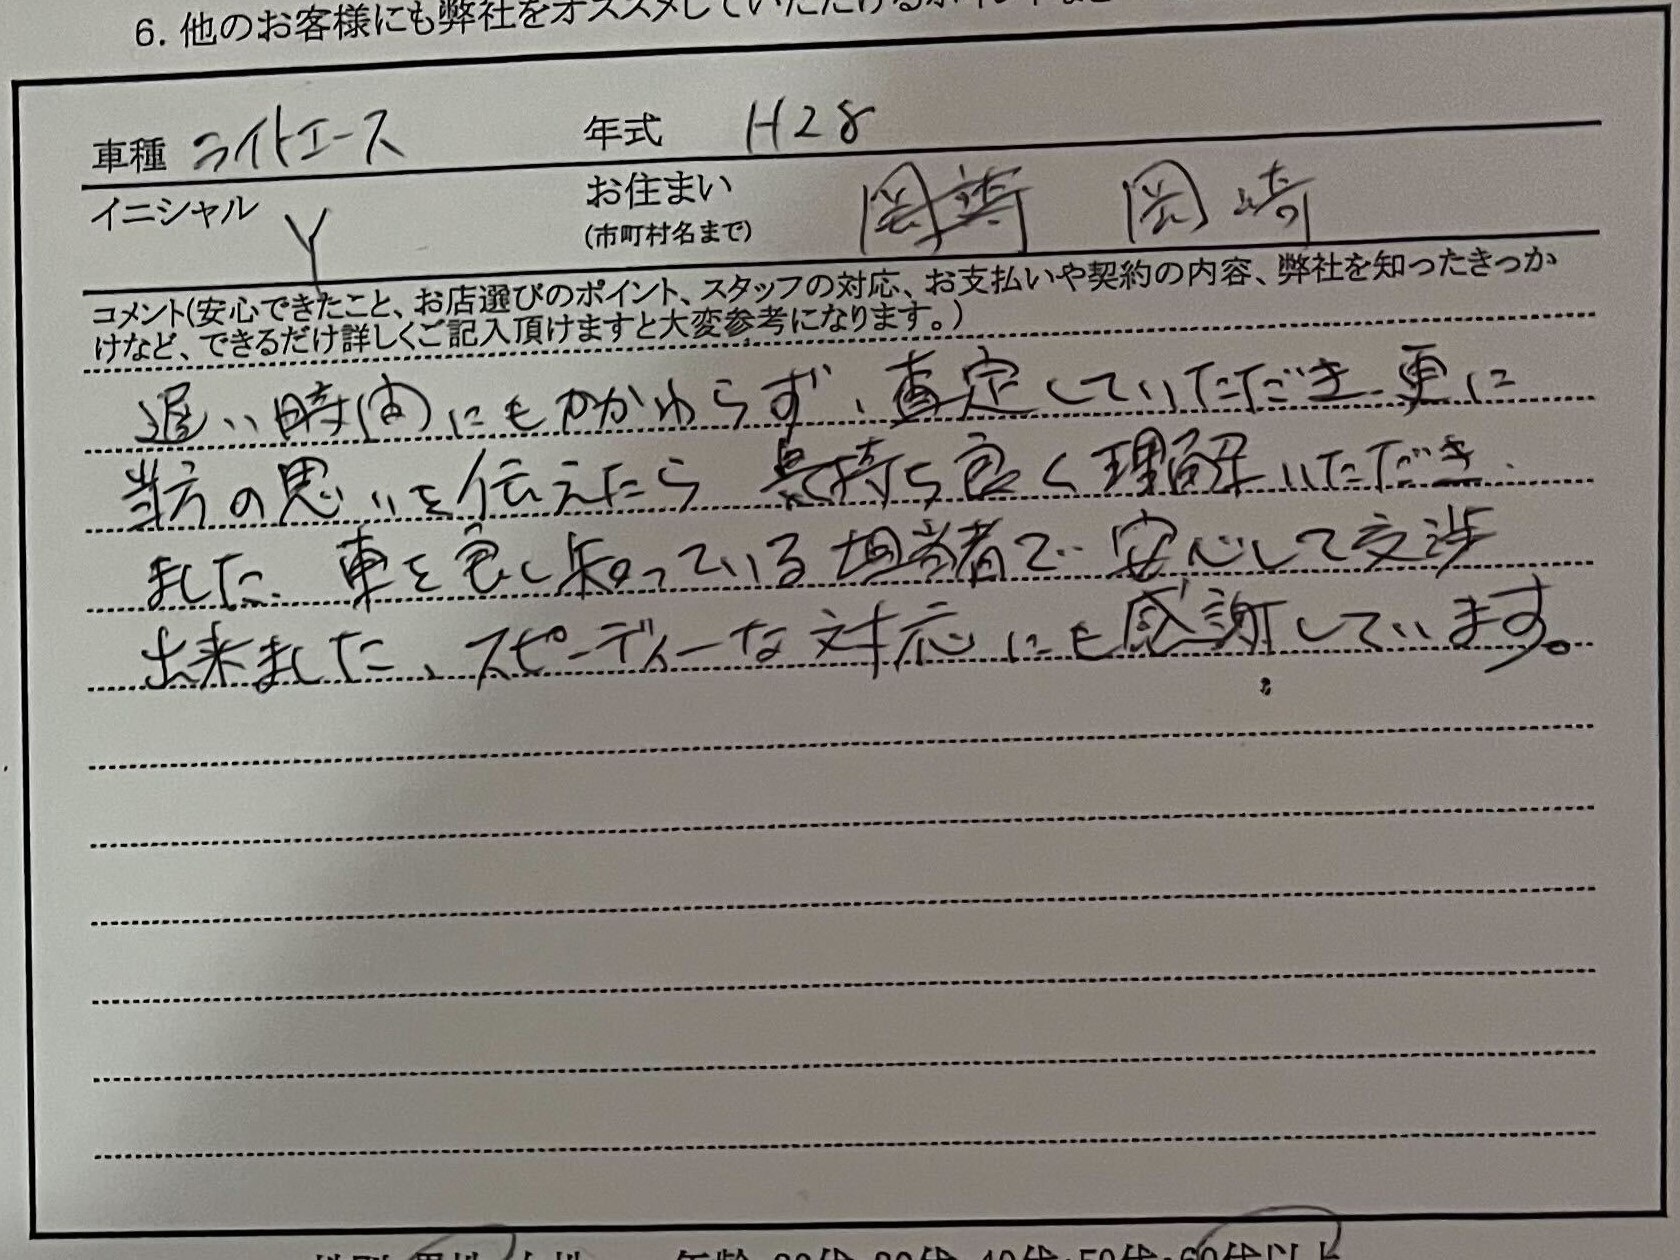 6. 他のお客様にも弊社をオススメしていただけるポイントなど
車種 ライトエース 年式 H28
イニシャル Y お住まい 岡崎
(市町村名まで)
コメント(安心できたこと、お店選びのポイント、スタッフの対応、お支払いや契約の内容、弊社を知ったきっか
けなど、できるだけ詳しくご記入頂けますと大変参考になります。)
遅い時間にもかかわらず、査定していただき 更に
当方の思いを伝えたら 気持ち良く理解いただき
ました 車を良く知っている担当者で 安心して交渉
出来ました、スピーディーな対応にも感謝しています。
性別 男性 女性 年齢 20代・30代・40代・50代・60代以上